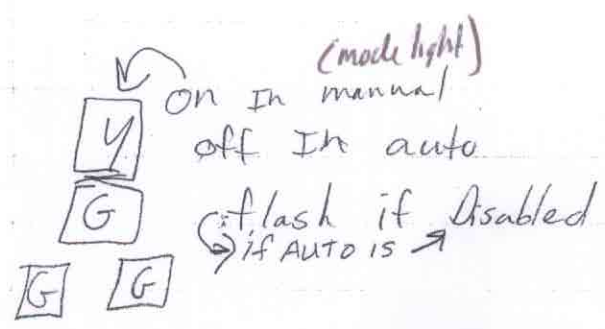 (mode light)
On In manual
Y off In auto
G flash if Disabled
if AUTO IS
G G